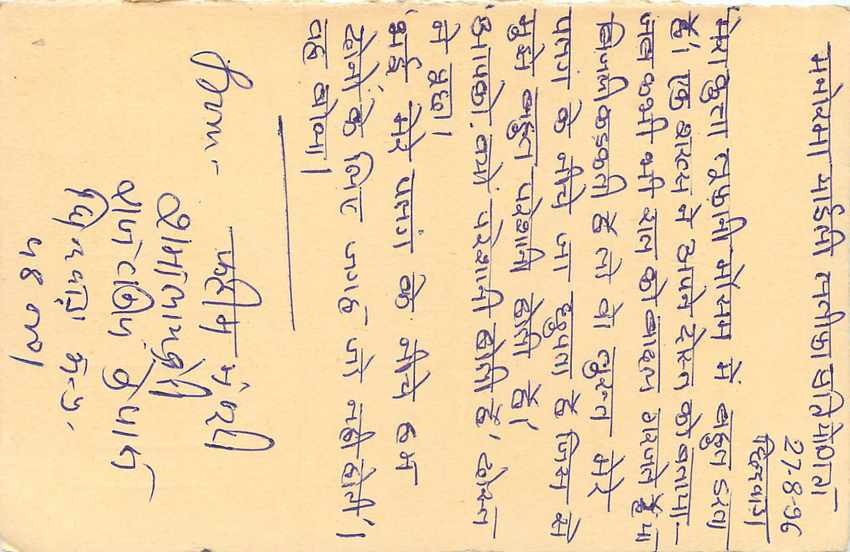 मनोरमा पार्डली लतीफा प्रतियोगिता
27-8-96
छिन्दवाड़ा
मेरा कुत्ता तूफानी मौसम में बहुत डरता
है। एक शख्स ने अपने दोस्त को बताया—
जब कभी भी रात को बादल गरजते हैं या
बिजली कड़कती है तो वो तुरन्त मेरे
पलंग के नीचे जा छुपता है जिस से
मुझे बहुत परेशानी होती है।
'आपको, क्यों परेशानी होती है' दोस्त
ने पूछा।
'भई मेरे पलंग के नीचे हम
दोनों के लिए जगह जो नहीं होती'।
वह बोला।
फहीम मंसूरी
छिन्दवाड़ा म.प्र.